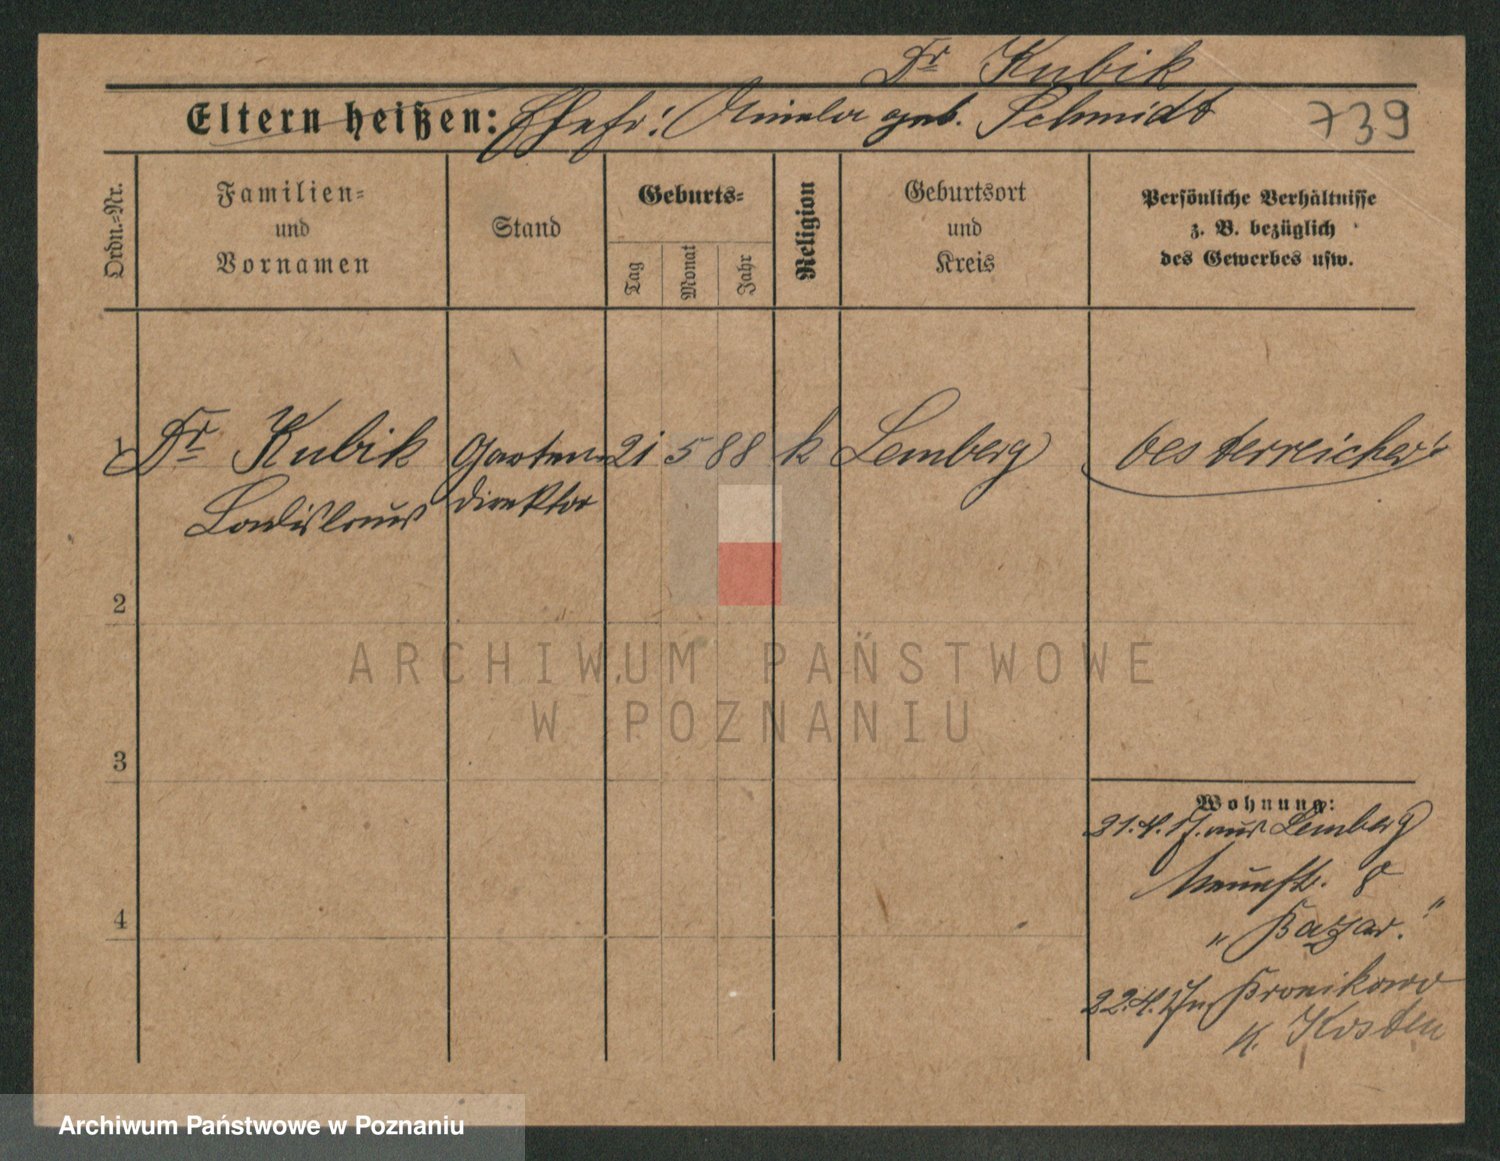 Dr Kubik
Eltern heißen: Ehefr: Aniela geb. Schmidt 739
Ordn.=Nr.
Familien=
und
Vornamen
Stand
Geburts=
Tag
Monat
Jahr
Religion
Geburtsort
und
Kreis
Persönliche Verhältnisse
z. B. bezüglich
des Gewerbes usw.
1 Dr Kubik Garten 21 5 88 k Lemberg oesterreicher
Ladislaus direktor
2
3
4
Wohnung:
21.4.17. aus Lemberg
8
"Bazar."
22.4. Kr. Kosten
ARCHIWUM PAŃSTWOWE
W POZNANIU
Archiwum Państwowe w Poznaniu